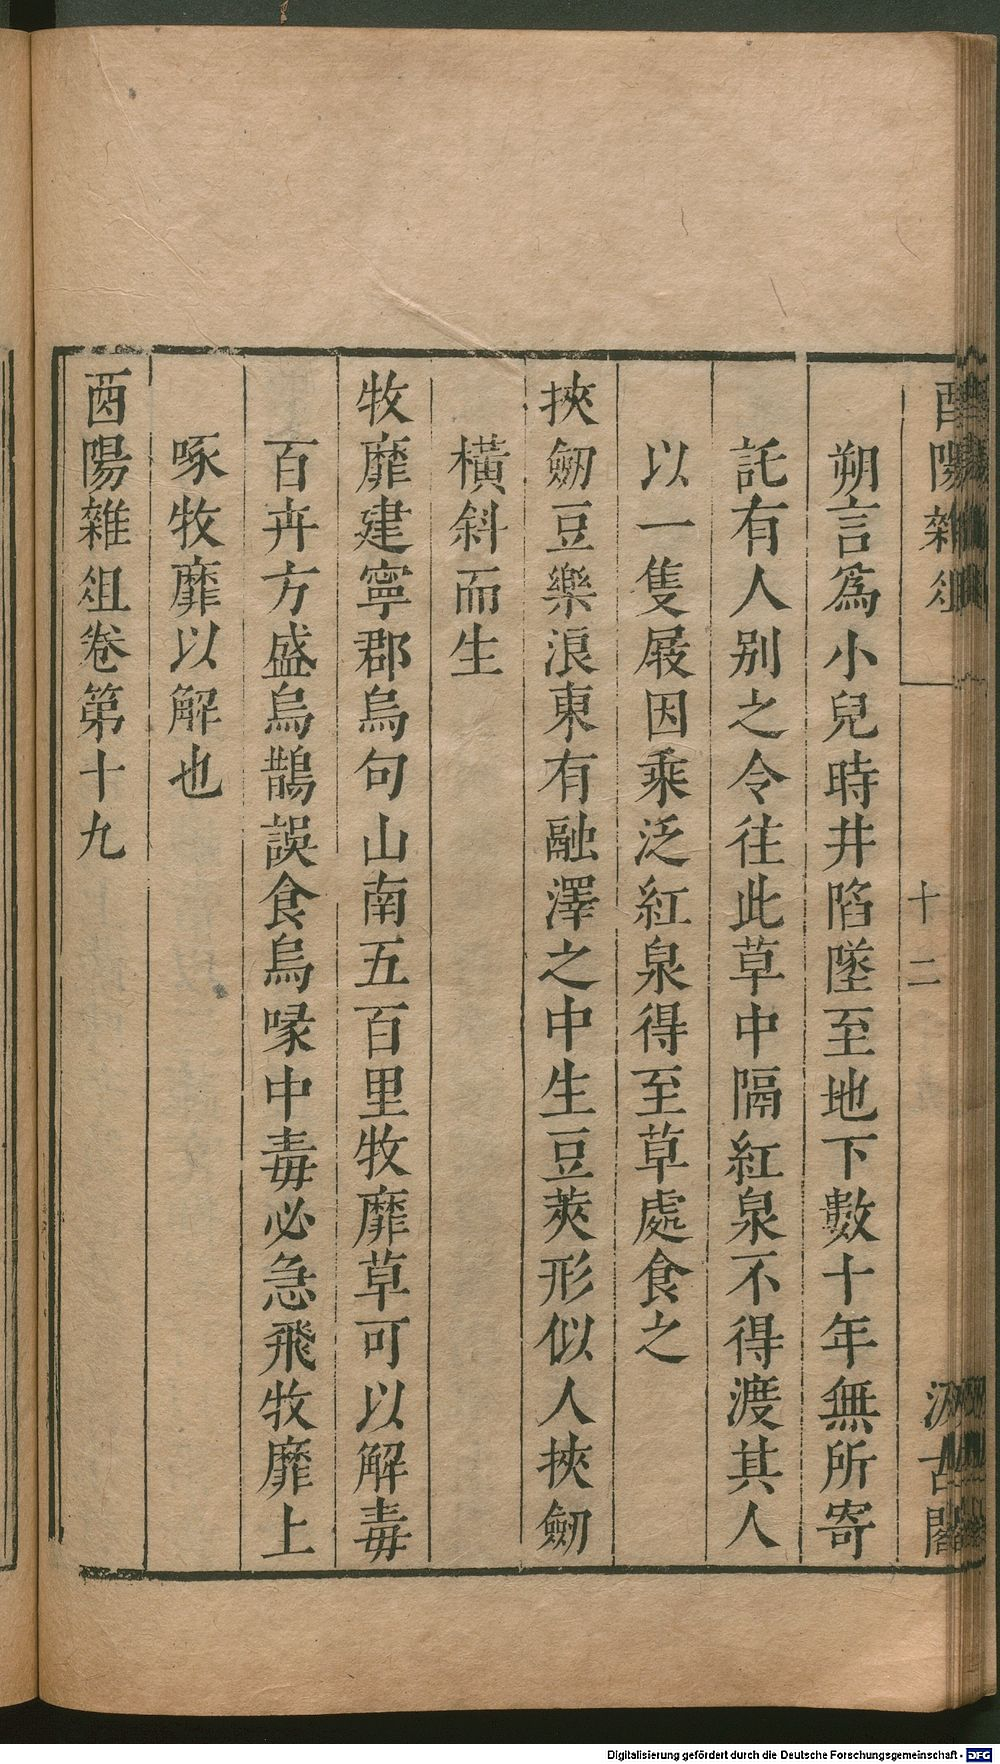 酉陽雜俎
十二
汲古閣
朔言爲小兒時井陷墜至地下數十年無所寄
託有人别之令往此草中隔紅泉不得渡其人
以一隻屐因乘泛紅泉得至草處食之
挾劒豆樂浪東有融澤之中生豆莢形似人挾劒
橫斜而生
牧靡建寧郡烏句山南五百里牧靡草可以解毒
百卉方盛烏鵲誤食烏喙中毒必急飛牧靡上
啄牧靡以解也
酉陽雜俎卷第十九
Digitalisierung gefördert durch die Deutsche Forschungsgemeinschaft - DFG